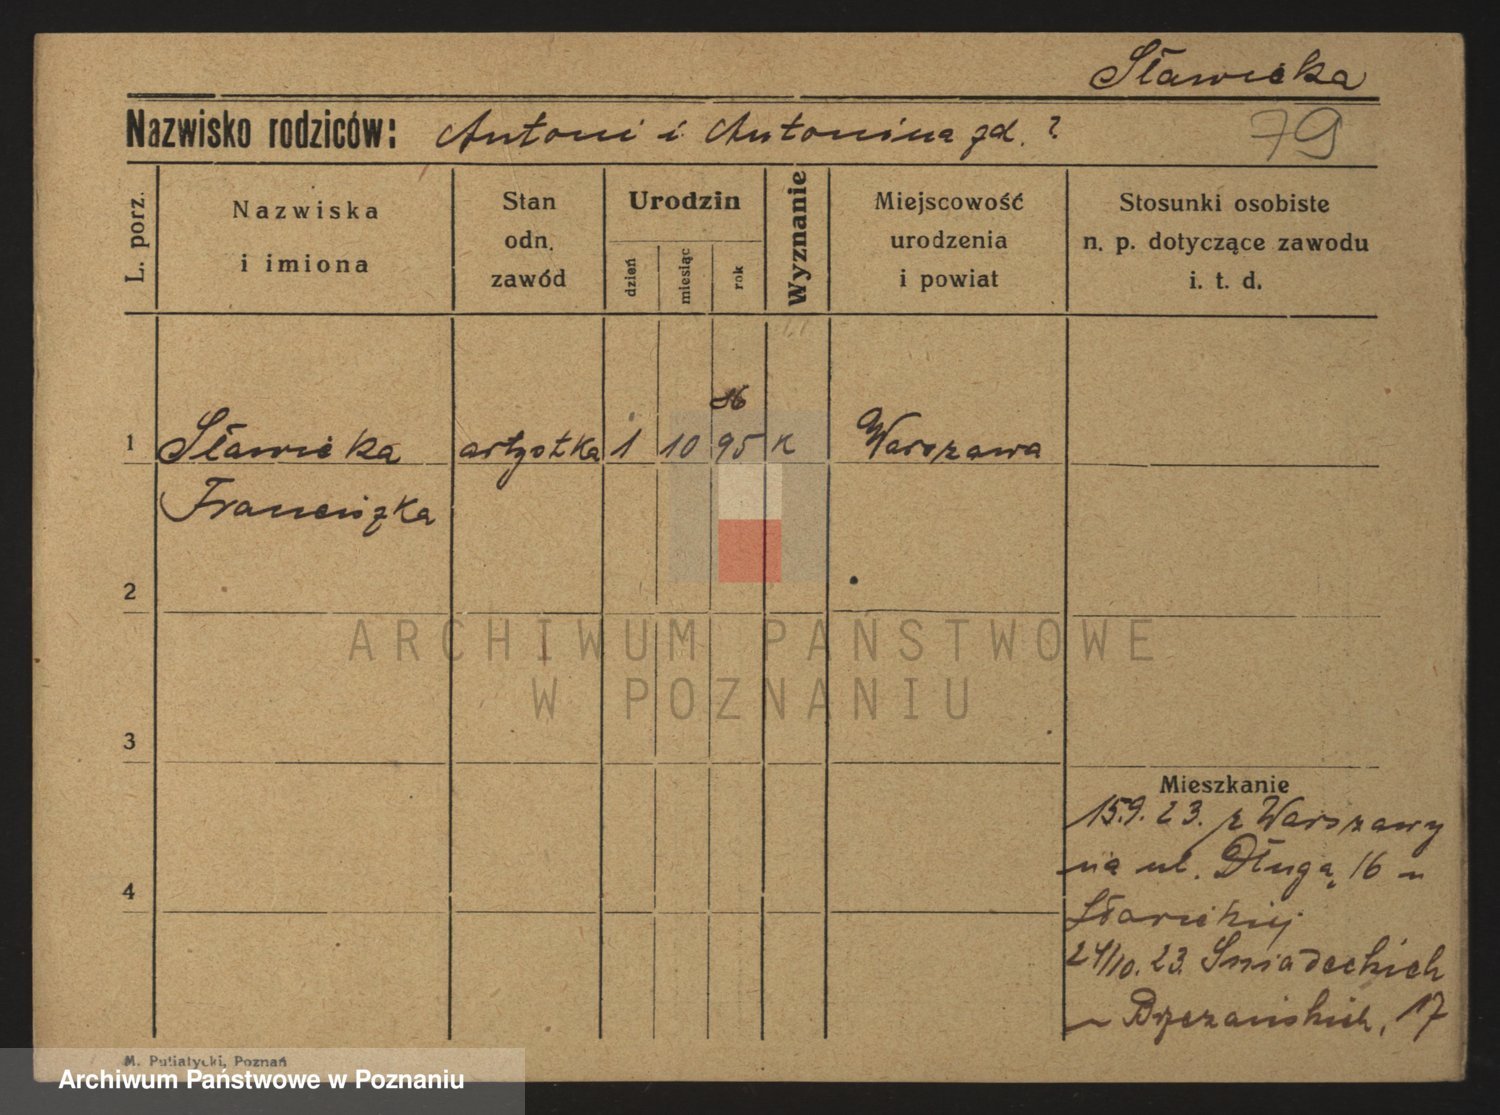 Sławicka
Nazwisko rodziców: Antoni i Antonina zd. ?
79
L. porz.
Nazwiska
i imiona
Stan
odn.
zawód
Urodzin
dzień
miesiąc
rok
Wyznanie
Miejscowość
urodzenia
i powiat
Stosunki osobiste
n. p. dotyczące zawodu
i. t. d.
86
1 Sławicka artystka 1 10 95 k Warszawa
Franciszka
2
ARCHIWUM PAŃSTWOWE
W POZNANIU
3
Mieszkanie
15.9.23. z Warszawy
na ul. Długą 16 u
4
24/10.23. Śniadeckich
u Brzezańskich, 17
M. Putiatycki, Poznań
Archiwum Państwowe w Poznaniu